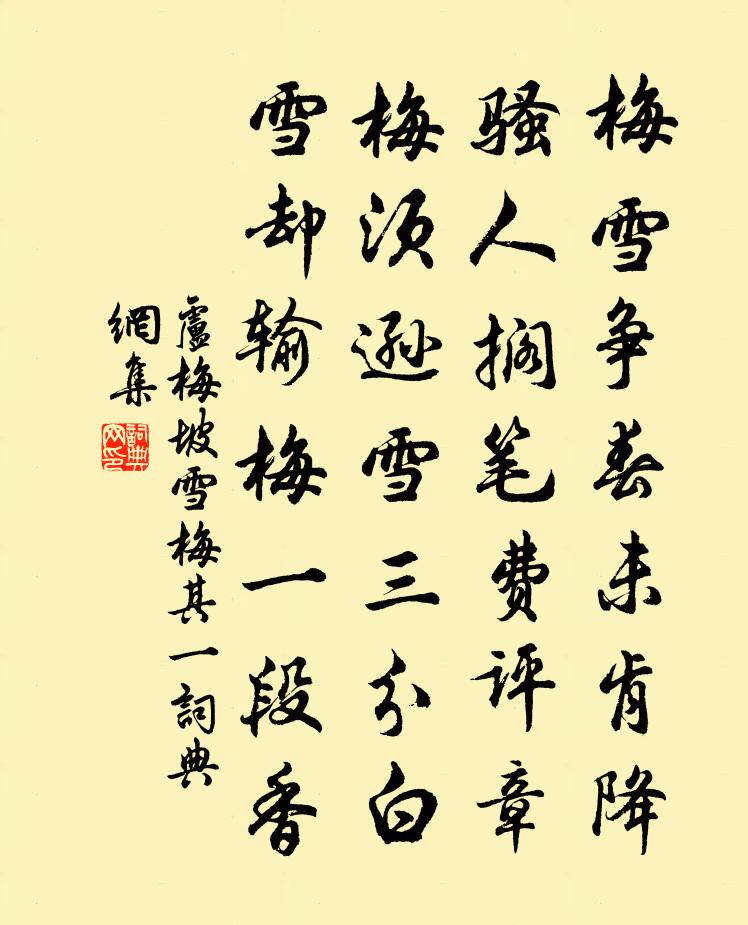 梅雪争春未肯降
骚人搁笔费评章
梅须逊雪三分白
雪却输梅一段香
盧梅坡雪梅其一詞典
網集
詞典
网印